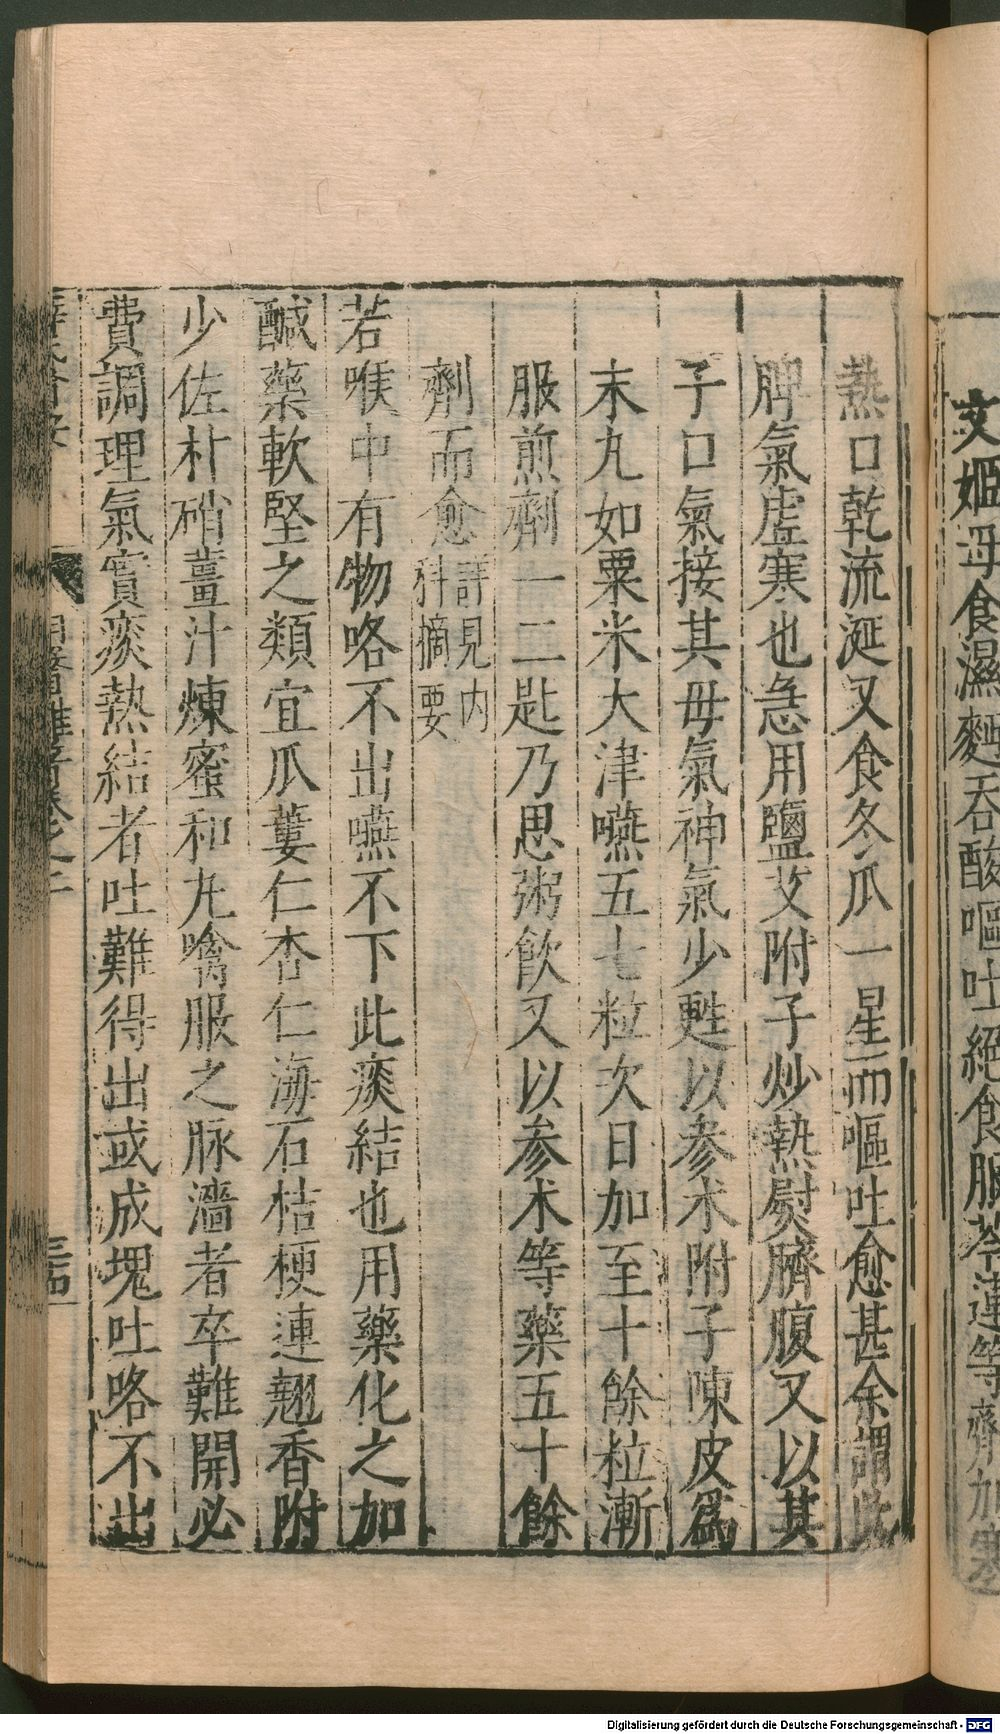 文姬母食濕麪吞酸嘔吐絕食服芩連等劑加寒
熱口乾流涎又食冬瓜一星而嘔吐愈甚余謂此
脾氣虛寒也急用鹽艾附子炒熱熨臍腹又以其
子口氣接其母氣神氣少甦以參朮附子陳皮爲
末丸如粟米大津嚥五七粒次日加至十餘粒漸
服煎劑一二匙乃思粥飲又以參朮等藥五十餘
劑而愈詳見内科摘要
若喉中有物咯不出嚥不下此痰結也用藥化之加
醎藥軟堅之類宜瓜蔞仁杏仁海石桔梗連翹香附
少佐朴硝薑汁煉蜜和丸噙服之脉濇者卒難開必
費調理氣實痰熱結者吐難得出或成塊吐咯不出
三四
Digitalisierung gefördert durch die Deutsche Forschungsgemeinschaft - DFG